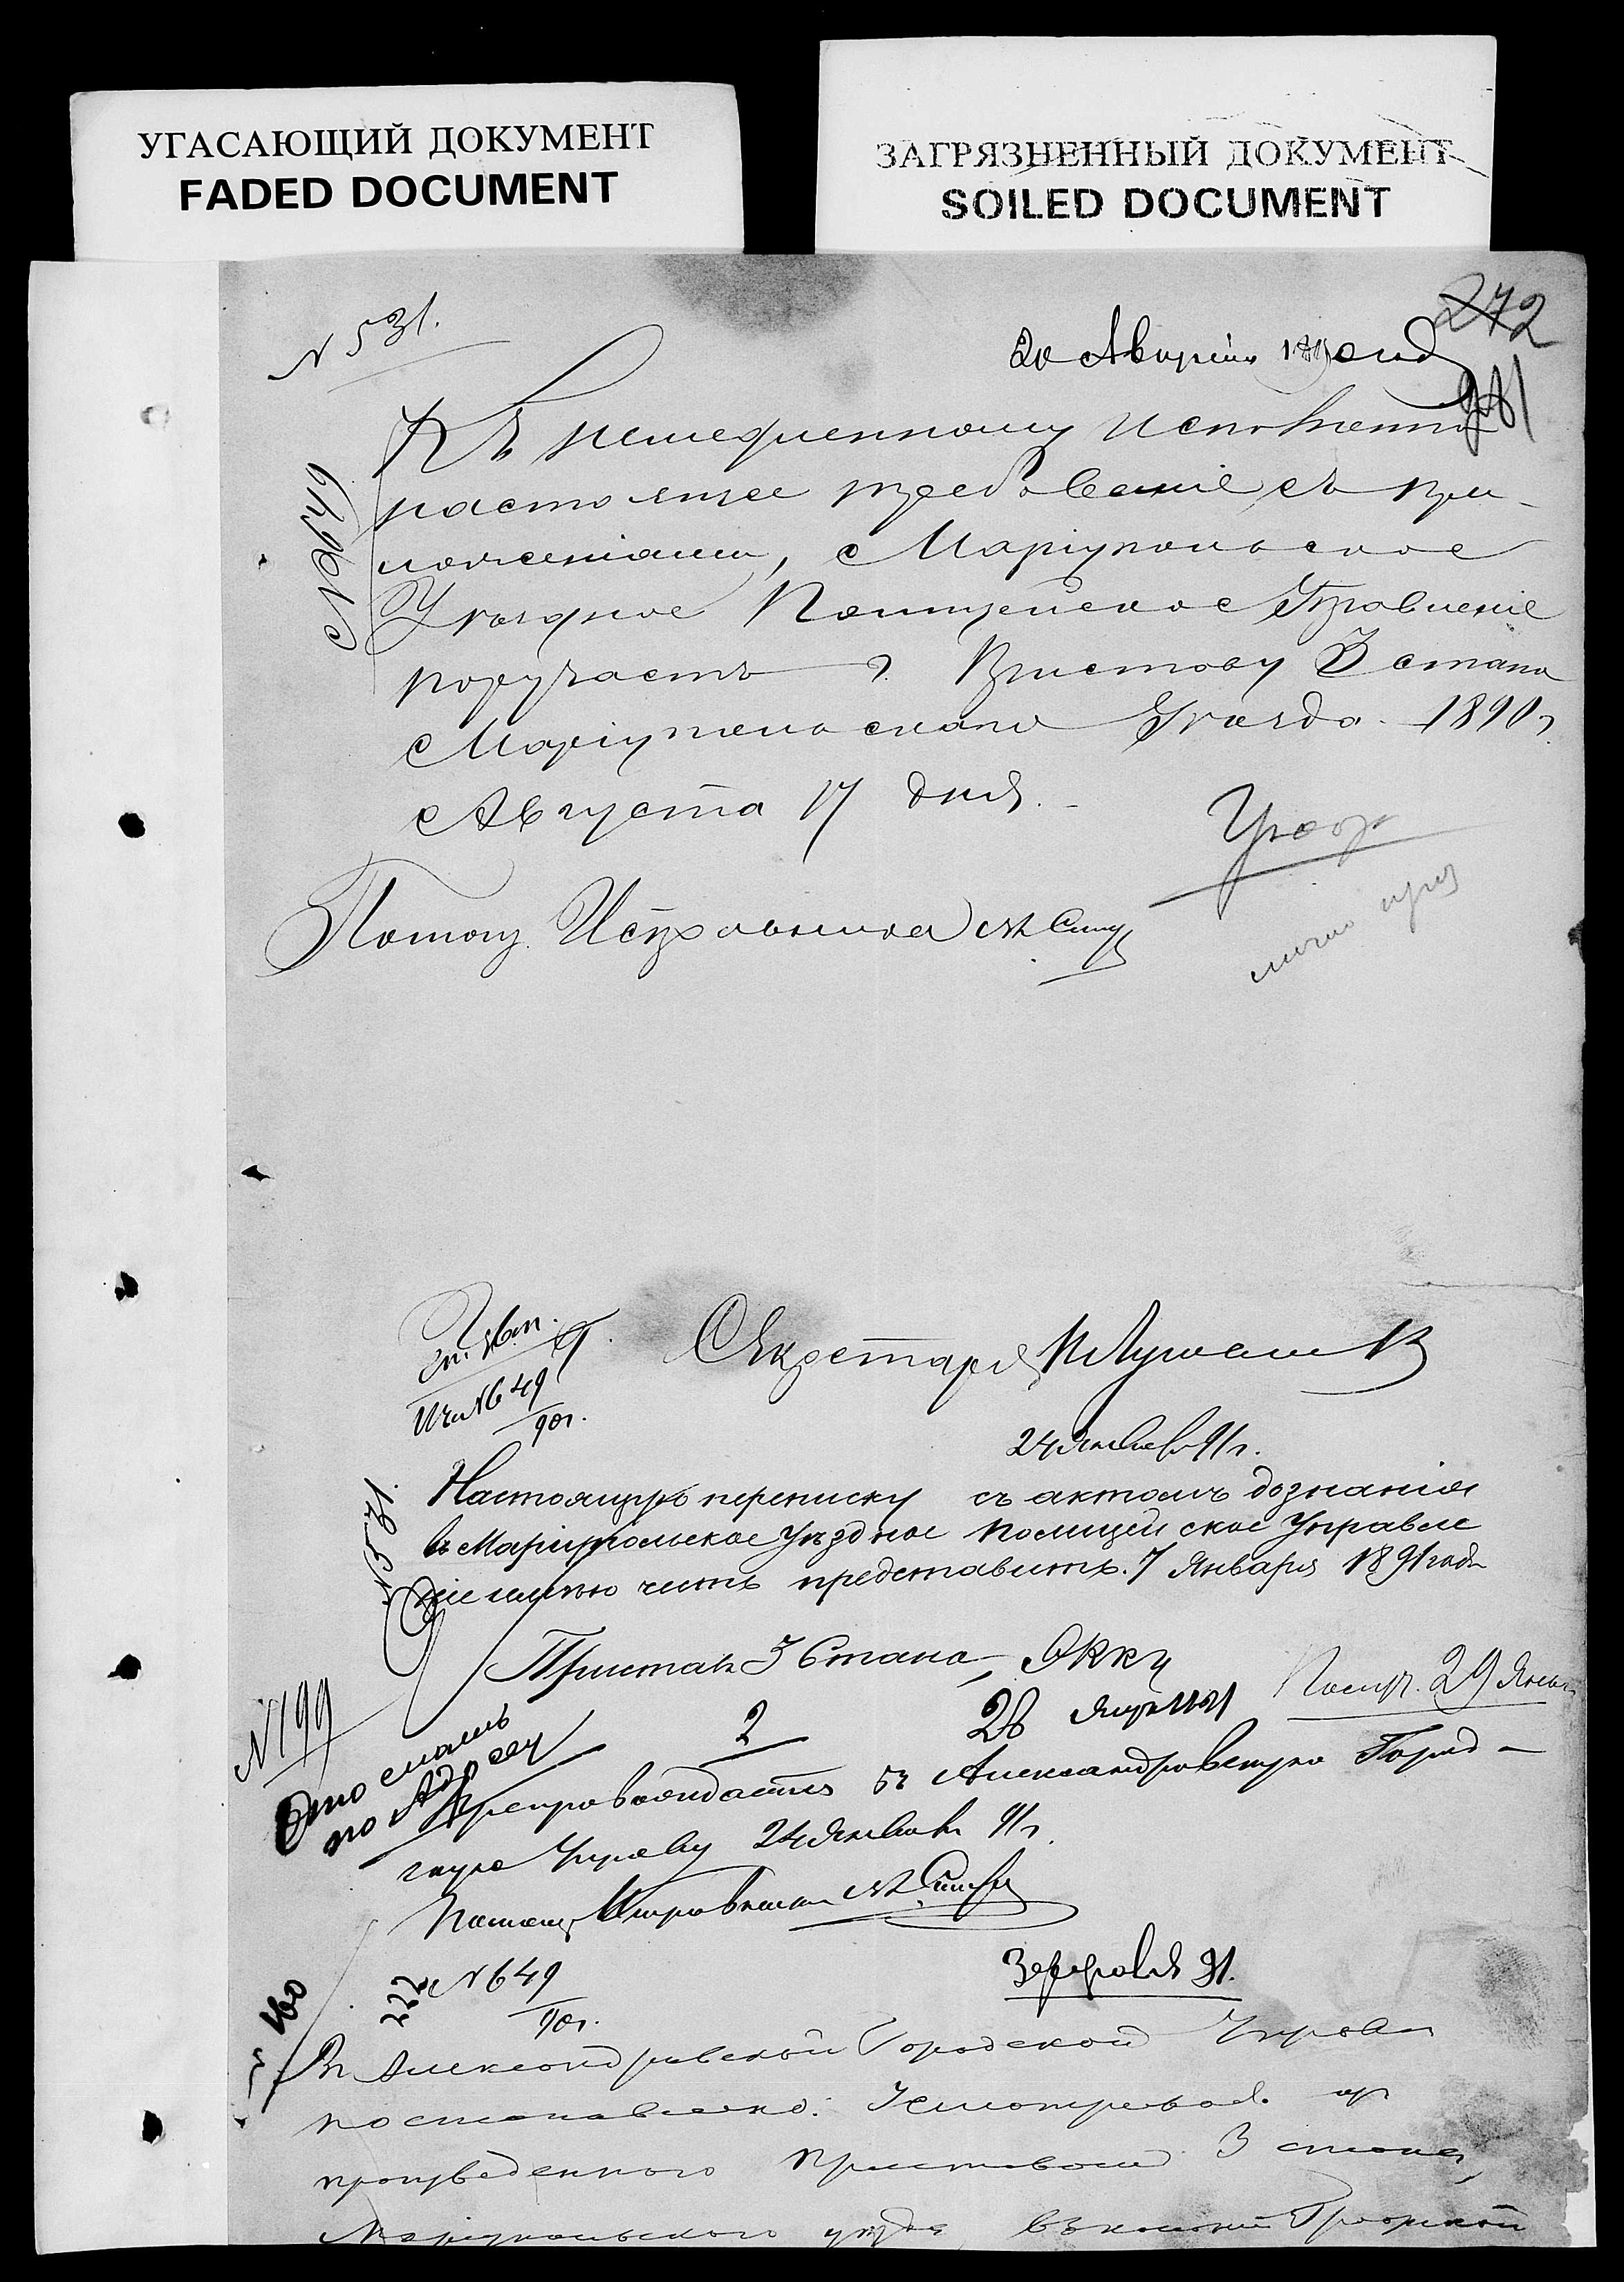 УГАСАЮЩИЙ ДОКУМЕНТ
FADED DOCUMENT
ЗАГРЯЗНЕННЫЙ ДОКУМЕНТ
SOILED DOCUMENT
272
N 531.
20 Августа
Къ немедленному исполненію
настоящее требованіе съ при-
ложеніями, Маріупольское
Уѣздное Полицейское Управленіе
поручаетъ г. Приставу 3 стана
Маріупольскаго Уѣзда. 1890 г.
Августа 17 дня.
N 2649
Помощ. Исправника
лично
Секретарь
N 649
90 г.
24 Января 91 г.
Настоящую переписку съ актомъ дознанія
въ Маріупольское Уѣздное Полицейское Управле
ніе имѣю честь представить. 7 Января 1891 года
N 531.
Приставъ 3 Стана
Получ. 29 Янв.
N 199
2
28
Отослать
по Адресу
Препровождается въ Александровскую Город-
скую Управу 24 Января 91 г.
Помощ. Исправника
N 649
90 г.
3 февраля 91.
160
Въ Александровской Городской Управѣ
постановлено:
произведеннаго Приставомъ 3 стана,
Маріупольскаго уѣзда, въ колоніи Графской